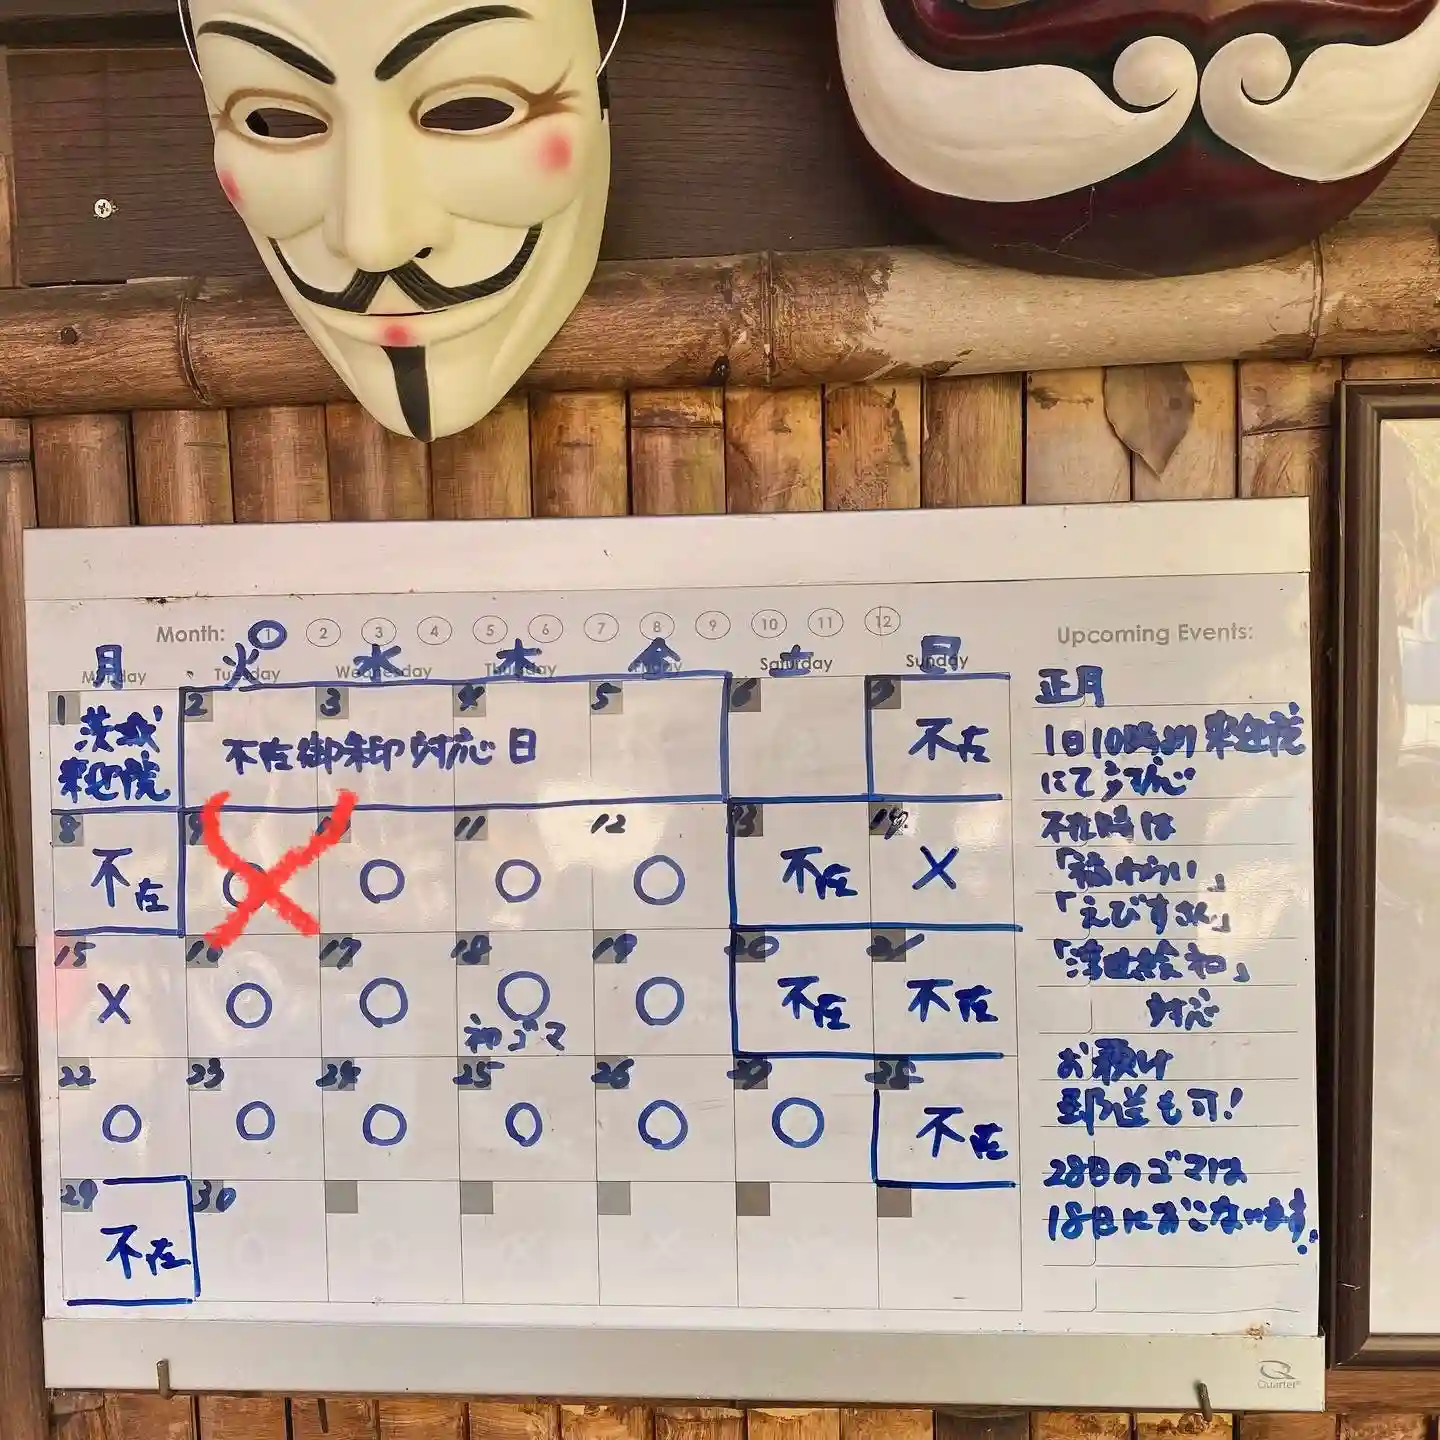 Month: 1 2 3 4 5 6 7 8 9 10 11 12
Upcoming Events:
月 火 水 木 金 土 日
Monday Tuesday Wednesday Thursday Friday Saturday Sunday
1 2 3 4 5 6 7
茨城
来迎院
不在御朱印対応日
不在
8 9 10 11 12 13 14
不在 〇 〇 〇 〇 不在 ×
15 16 17 18 19 20 21
× 〇 〇 〇 〇 不在 不在
初ゴマ
22 23 24 25 26 27 28
〇 〇 〇 〇 〇 〇 不在
29 30
不在
正月
1日10時より来迎院
にて対応
不在時は
「えびすさん」
「浮世絵初」
対応
お願い
郵送も可!
28日のゴマは
18日におこないます!
Quartet